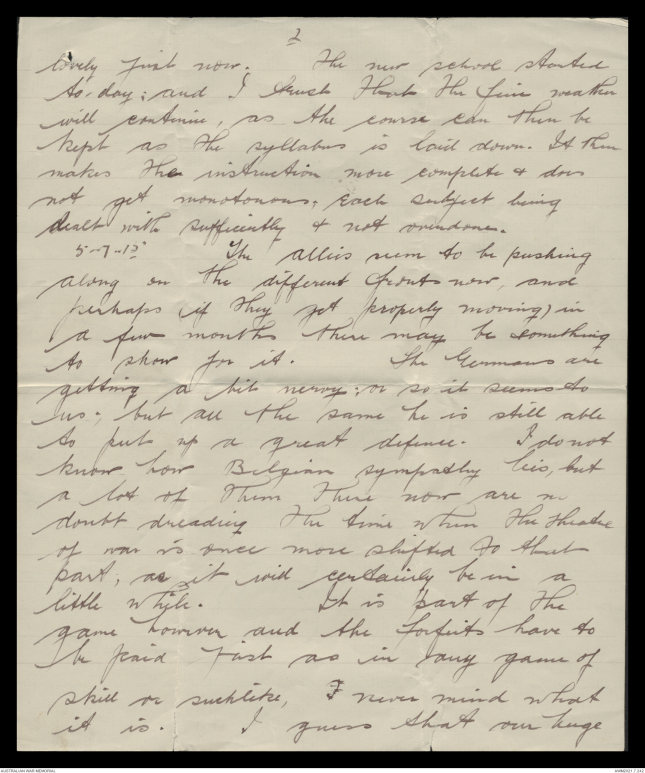 2
lovely just now. The new school started
to-day; and I trust that the fine weather
will continue, as the course can then be
kept as the syllabus is laid down. It then
makes the instruction more complete & does
not get monotonous; each subject being
dealt with sufficiently & not overdone.
5-7-18 The allies seem to be pushing
along on the different fronts now, and
perhaps (if they get properly moving) in
a few months there may be something
to show for it. The Germans are
getting a bit nervy; or so it seems to
us; but all the same he is still able
to put up a great defence. I do not
know how Belgian sympathy lies, but
a lot of them there now are no
doubt dreading the time when the theatre
of war is once more shifted to that
part, as it will certainly be in a
little while. It is part of the
game however and the forfeits have to
be paid just as in any game of
skill or suchlike, I never mind what
it is. I guess that our huge
AUSTRALIAN WAR MEMORIAL